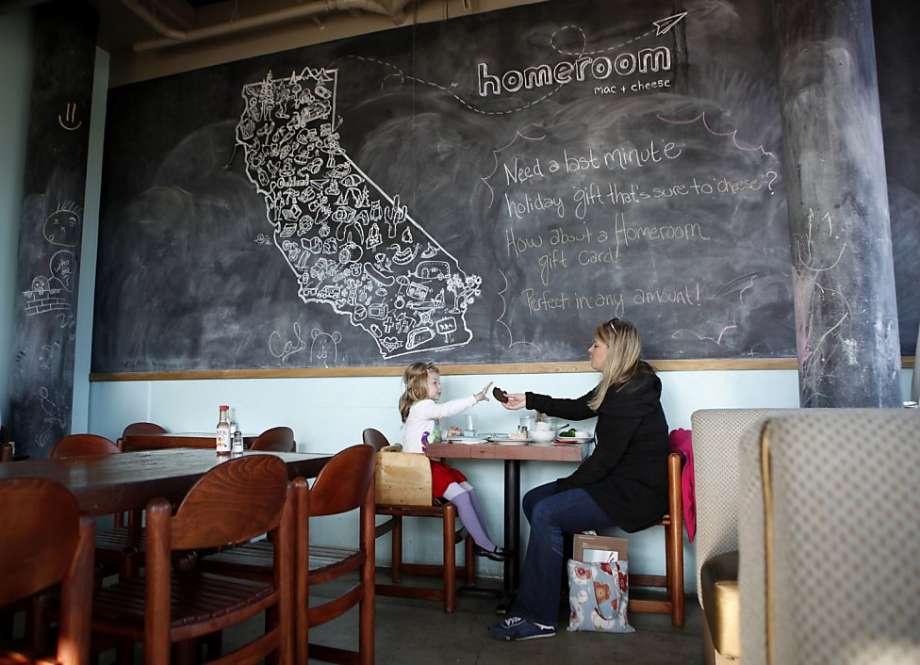 homeroom
mac + cheese
Need a last minute
holiday gift that's sure to "cheese"?
How about a Homeroom
gift card!
Perfect in any amount!
Oakland